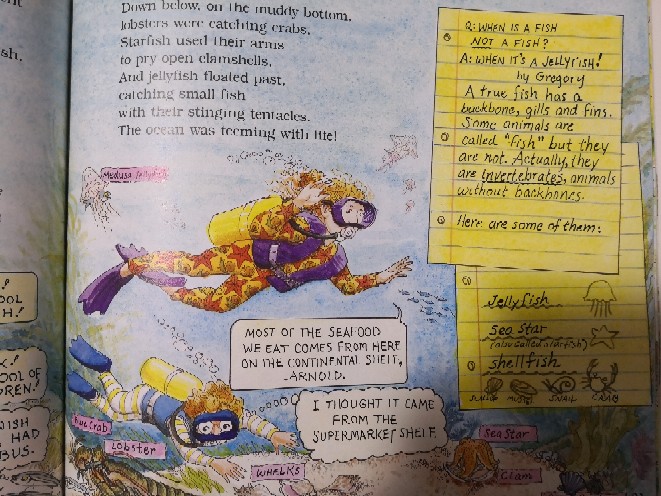 Down below, on the muddy bottom,
lobsters were catching crabs.
Starfish used their arms
to pry open clamshells.
And jellyfish floated past,
catching small fish
with their stinging tentacles.
The ocean was teeming with life!
Q: WHEN IS A FISH
NOT A FISH?
A: WHEN IT'S A JELLYFISH!
by Gregory
A true fish has a
backbone, gills and fins.
Some animals are
called "fish" but they
are not. Actually, they
are invertebrates, animals
without backbones.
Here are some of them:
Jellyfish
Sea Star
(also called starfish)
shellfish
MUSSEL
SNAIL
CRAB
Medusa Jellyfish
MOST OF THE SEAFOOD
WE EAT COMES FROM HERE
ON THE CONTINENTAL SHELF,
ARNOLD.
I THOUGHT IT CAME
FROM THE
SUPERMARKET SHELF.
Blue Crab
Lobster
WHELKS
Sea Star
Clam
sh.
OOL
H!
OOL OF
REN!
DISH
HAD
BUS.